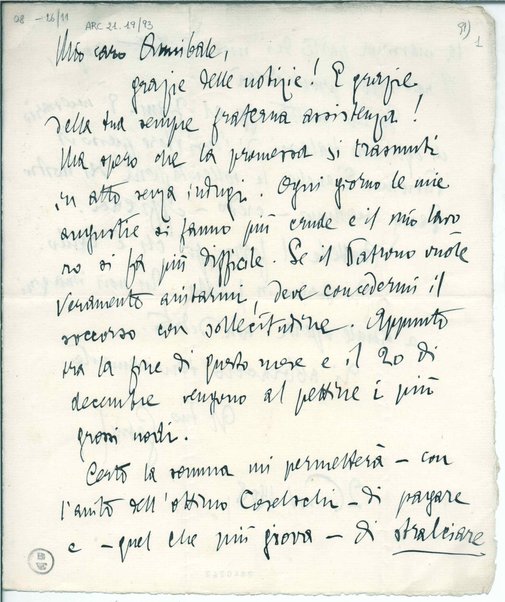 08 - 26/11
ARC 21.19/93
91)
1
Mio caro Annibale,
grazie delle notizie! E grazie
della tua sempre fraterna assistenza!
Ma spero che la promessa si trasmuti
in atto senza indugi. Ogni giorno le mie
angustie si fanno più crude e il mio lavo
ro si fa più difficile. Se il Patrono vuole
veramente aiutarmi, deve concedermi il
soccorso con sollecitudine. Appunto
tra la fine di questo mese e il 20 di
decembre vengono al pettine i più
grossi nodi.
Certo la somma mi permetterà – con
l'aiuto dell'ottimo Coselschi – di pagare
e – quel che più giova – di stralciare